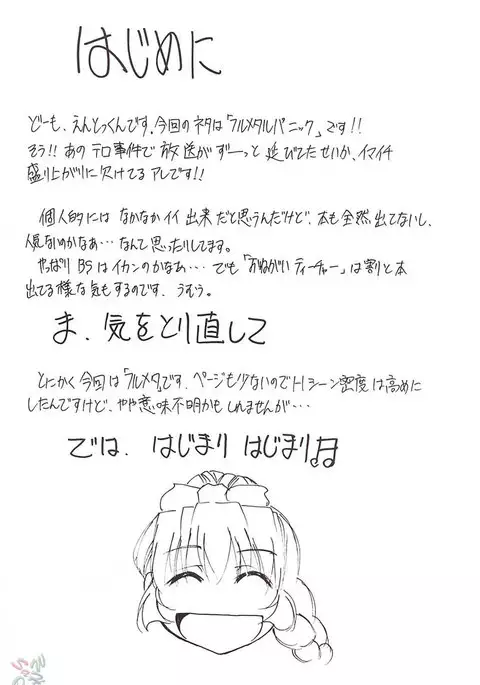 はじめに
どーも、えんとっくんです。今回のネタは「フルメタルパニック」です!!
そう!! あのテロ事件で放送がずーっと延びてたせいか、イマイチ
盛り上がりに欠けてるアレです!!
個人的にはなかなかイイ出来だと思うんだけど、本も全然出てないし、
人気ないのかなぁ…なんて思ったりしてます。
やっぱりBSはイカンのかなぁ… でも「おねがいティーチャー」は割と本
出てる様な気もするのです、うむう。
ま、気をとり直して
とにかく今回は「フルメタ」です、ページも少ないのでHシーン密度は高めに
したんですけど、やや意味不明かもしれませんが…
では、はじまりはじまり♪